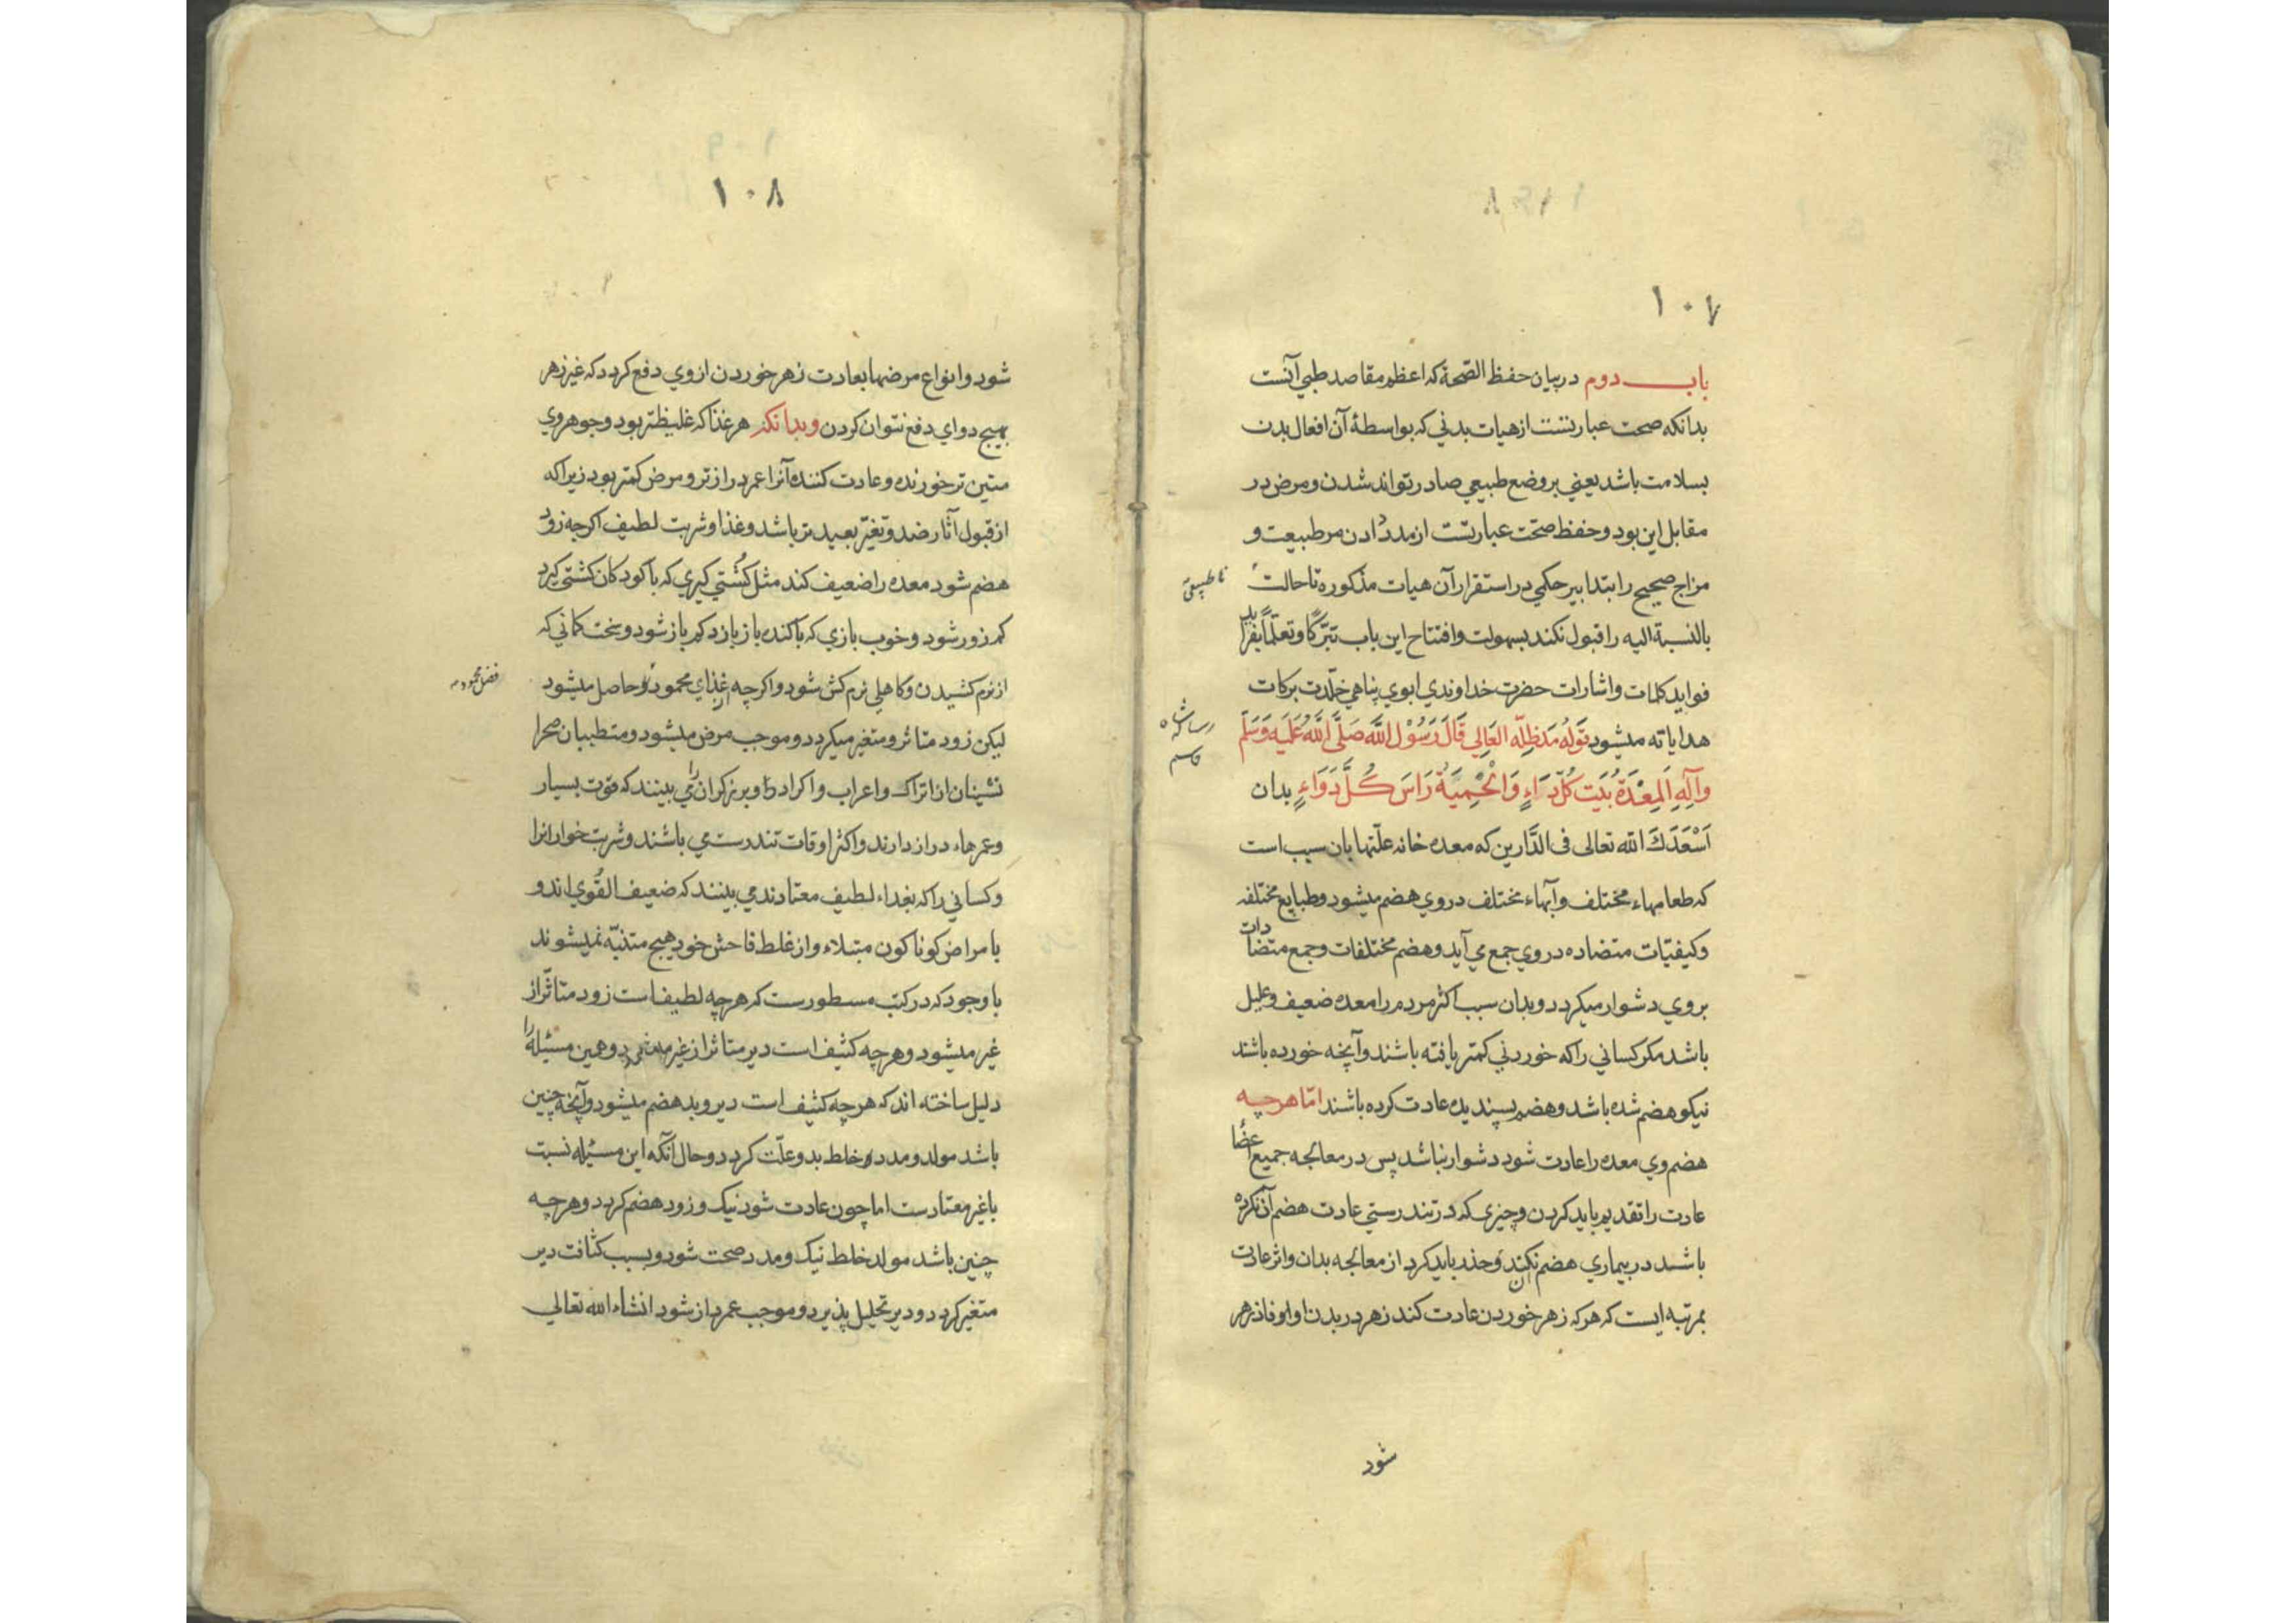 ۱۰۷
باب دوم در بیان حفظ الصّحة که اعظم مقاصد طبی آنست
بدانکه صحت عبارتست از هیات بدنی که بواسطهٔ آن افعال بدن
بسلامت باشد یعنی بر وضع طبیعی صادر تواند شدن و مرض در
مقابل این بود و حفظ صحّت عبارتست از مدد دادن مر طبیعت و
مزاج صحیح را بتدابیر حکمی در استقرار آن هیات مذکوره تا حالت
نا طبیعی
بالنسبة الیه را قبول نکند بسهولت و افتتاح این باب تبرّکاً و تعلّماً
فواید کلمات و اشارات حضرت خداوندی ابوی پناهی خلّدت برکات
هدایاته میشود قَولُهُ مَدّ ظِلّه العَالِی قَالَ رَسُوْل اللَّه صَلَّی اللَّهُ عَلَیه وَسَلَّم
وَآلِهِ اَلمِعْدَةُ بُیَت کُلّ دَاءٍ وَالْحِمِیَةُ رَاسَ کُلّ دَوَاءٍ بدان
اَسْعَدَكَ الله تعالی فی الدَّارین که معده خانه علّتها بان سبب است
که طعامهاء مختلف و آبهاء مختلف در وی هضم میشود و طبایع مختلفه
و کیفیّات متضاده در وی جمع می آید و هضم مختلفات و جمع متضادات
بروی دشوار میکردد و بدان سبب اکثر مردم را معده ضعیف و علیل
باشد مکر کسانی را که خوردنی کمتر یافته باشند و آنچه خورده باشند
نیکو هضم شده باشد و هضم پسندیده عادت کرده باشند امّا هرچه
هضم وی معده را عادت شود دشوار نباشد پس در معالجه جمیع اعضا
عادت را تقدیم باید کردن و چیزی که در تندرستی عادت هضم آن نکرده
باشند در بیماری هضم آن نکند و حذر باید کرد از معالجه بدان و اثر عادت
بمرتبه ایست که هرکه زهر خوردن عادت کند زهر در بدن او فاذزهر
شود
۱۰۸
شود و انواع مرضها بعادت زهر خوردن از وی دفع کردد که غیر زهر
بهیچ دوای دفع نتوان کردن و بدانکه هر غذا که غلیظتر بود و جوهر وی
متین تر خورنده و عادت کننده آنرا عمر درازتر و مرض کمتر بود زیرا که
از قبول آثار ضد و تغیّر بعید تر باشد و غذا و شربت لطیف اکرچه زود
هضم شود معده را ضعیف کند مثل کُشتی کیری که با کودکان کشتی کیرد
کم زور شود و خوب بازی که با کنده باز بازد کم باز شود و سخت کمانی که
از نرم کشیدن و کاهلی نرم کش شود و اکرچه از غذای محمود حاصل میشود
لیکن زود متاثر و متغیر میکردد و موجب مرض میشود و متطببان صحرا
نشینان از اتراك و اعراب و اکراد و برزکران را می بینند که قوت بسیار
و عمرهاء دراز دارند و اکثر اوقات تندرست می باشند و شربت خوارانرا
و کسانی را که بغداء لطیف معتادند می بینند که ضعیف القُوی اند و
بامراض کوناکون مبتلاء و از غلط فاحش خود هیچ متنبّه نمیشوند
با وجود که در کتب مسطورست که هرچه لطیف است زود متاثّر از
غیر میشود و هرچه کثیف است دیر متاثر از غیر میشود و همین مسئله را
دلیل ساخته اند که هرچه کثیف است دیر و بد هضم میشود و آنچه چنین
باشد مولد و مدد خلط بد و علّت کردد و حال آنکه این مسئله نسبت
با غیر معتادست اما چون عادت شود نیک و زود هضم کردد و هرچه
چنین باشد مولد خلط نیک و مدد صحت شود و بسبب کثافت دیر
متغیر کردد و دیر تحلیل پذیرد و موجب عمر دراز شود انشاء الله تعالی